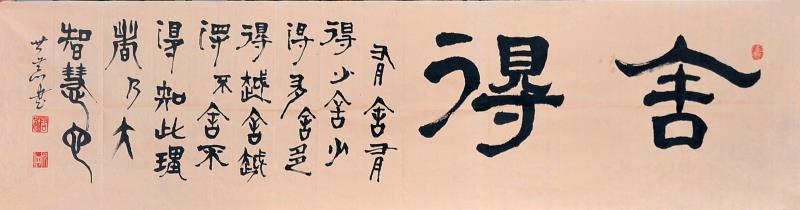 舍得
有舍有
得少舍少
得多舍多
得越舍越
得不舍不
得知此理
者乃大
智慧也